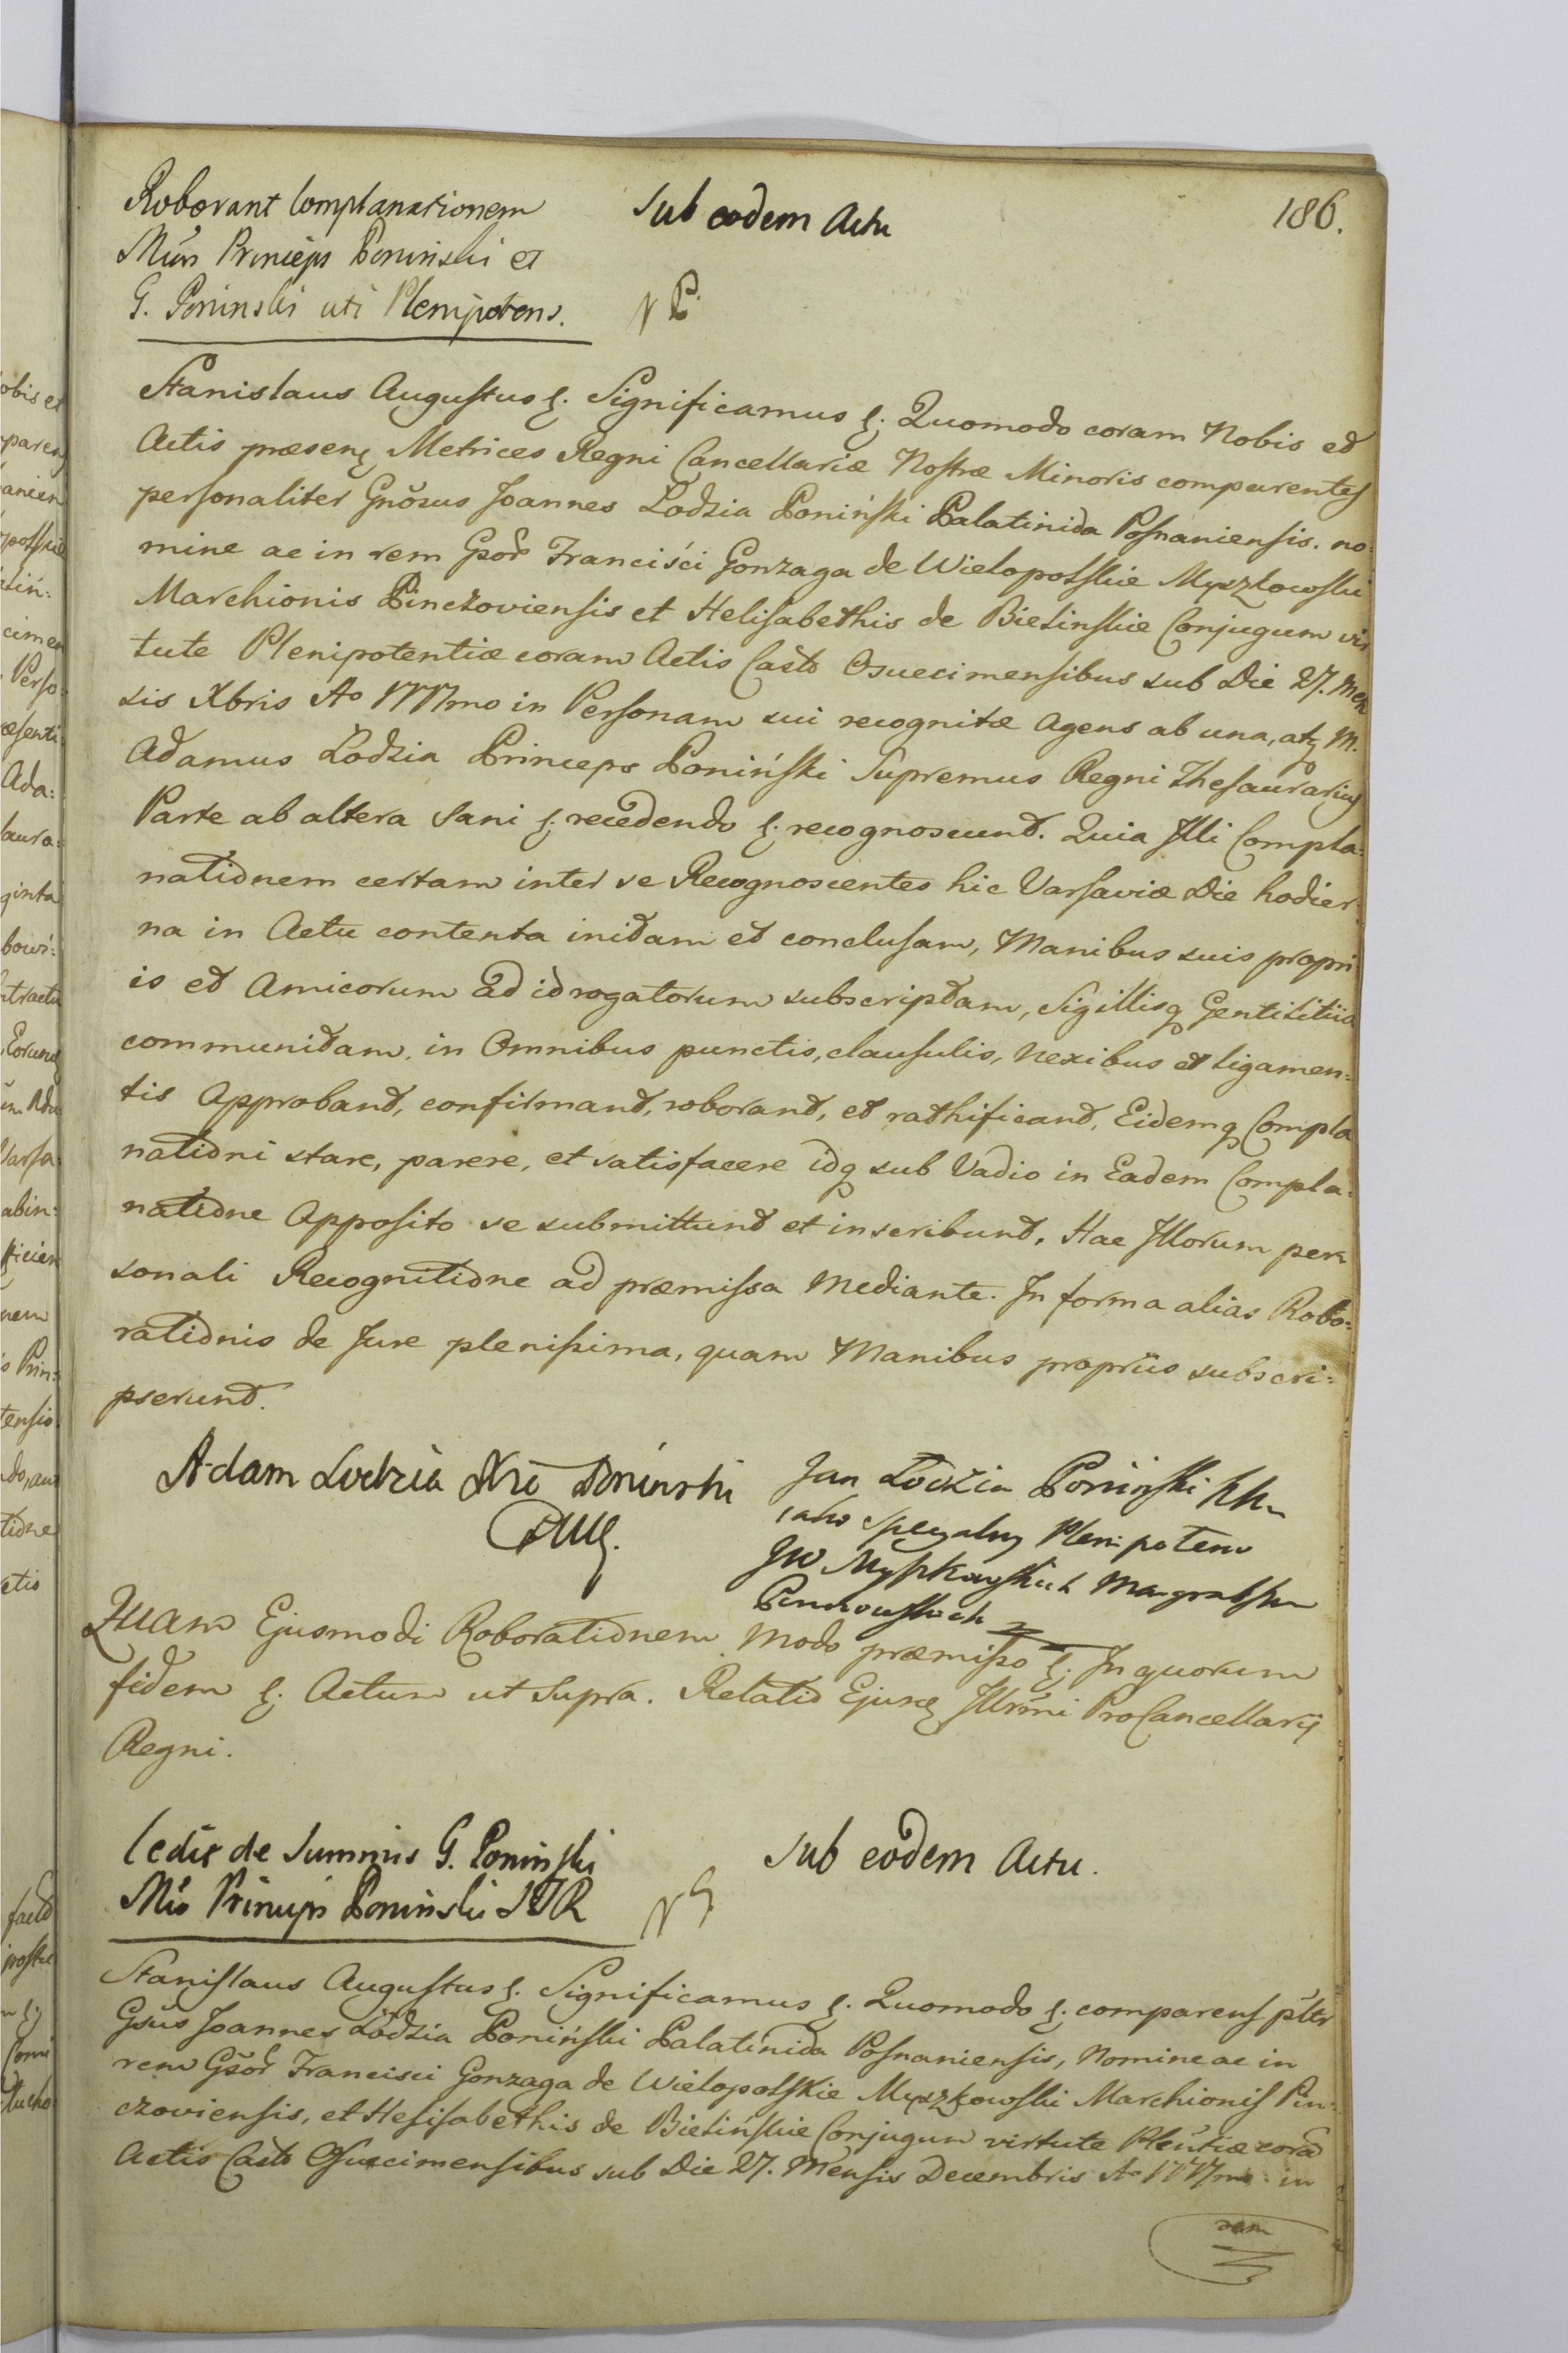 186.
Roborant Complanationem
Mūs Princeps Poninski et
G. Poninski uti Plenipotens.
Sub eodem Actu
Stanislaus Augustus ę. Significamus ę. Quomodo coram Nobis et
Actis præsenę Metrices Regni Cancellariæ Nostræ Minoris comparentes
personaliter Gnōsus Joannes Lodzia Poniński Palatinida Posnaniensis. no:
mine ac in rem Gsor Francisci Gonzaga de Wielopolskie Myszkowski
Marchionis Pinczoviensis et Helisabethis de Bielinskie Conjugum vir
tute Plenipotentiæ coram Actis Castō Osuecimensibus sub Die 27. Men
sis Xbris Aō 1777mo in Personam sui recognitæ Agens ab una, atq M.
Adamus Lodzia Princeps Poniński Supremus Regni Thesaurarius
Parte ab altera Sani ę. recedendo ę. recognoscunt. Quia Illi Compla:
nationem certam inter se Recognoscentes hic Varsaviæ Die hodier
na in Actu contenta initam et conclusam, Manibus suis propri
is et Amicorum ad id rogatorum subscriptam, Sigillisq Gentilitiis
communitam, in Omnibus punctis, clausulis, nexibus et ligamen:
tis Approbant, confirmant, roborant, et rathificant, Eidemq Compla
nationi stare, parere, et satisfacere idq sub Vadio in Eadem Compla:
natione Apposito se submittunt et inscribunt. Hac Illorum per
sonali Recognitione ad præmissa Mediante. In forma alias Robo:
rationis de Jure plenissima, quam Manibus propriis subscri:
pserunt.
Adam Lodzia Xże Poninski
Jan Łodzia Poniński
iako specyalny Plenipotent
JW Myszkowskich Margrabstw
Pinczowskich
Quam Ejusmodi Roborationem Modo præmisso ę. In quorum
fidem ę. Actum ut Supra. Relatio Ejusę Illrmi ProCancellarij
Regni.
Cedit de Summis G. Poninski
Mūs Princeps Poninski STR
Sub eodem Actu.
Stanislaus Augustus ę. Significamus ę. Quomodo ę. comparens pltr
Gsus Joannes Lodzia Poniński Palatinida Posnaniensis, Nomine ac in
rem Gsor Francisci Gonzaga de Wielopolskie Myszkowski Marchionis Pin:
czoviensis, et Helisabethis de Bielińskie Conjugum virtute Plentiæ cora
Actis Castō Osuecimensibus sub Die 27. Mensis Decembris Aō 1777mo in